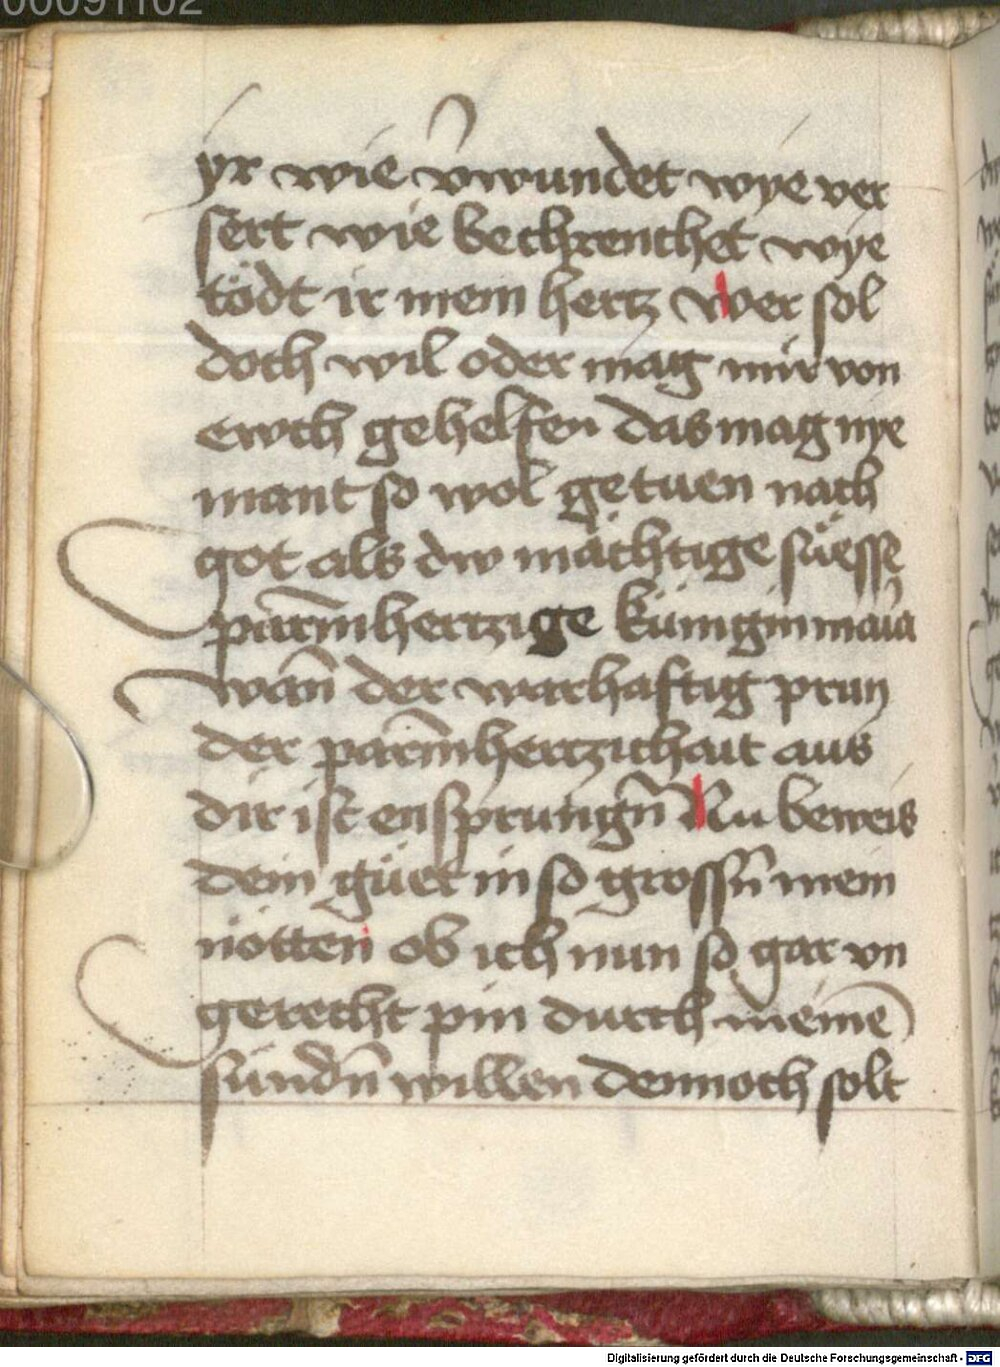 00091102
yr wie v̄wundet wye ver
sert wie bechrenchet wye
tödt ir mein hertz Wer sol
doch wil oder mag mir von
ewch gehelfen das mag nye
mant so wol getuen nach
got als dw mächtige süesse
parm̄hertzige künigin maria
wan̄ der warhaftig prun
der parm̄hertzichait aus
dir ist ensprungn̄ Nu beweis
dein güet in so grossn̄ mein
nötten ob ich nun so gar vn
gerecht pin durch meinē
sündn̄ willen dennoch solt
Digitalisierung gefördert durch die Deutsche Forschungsgemeinschaft - DFG